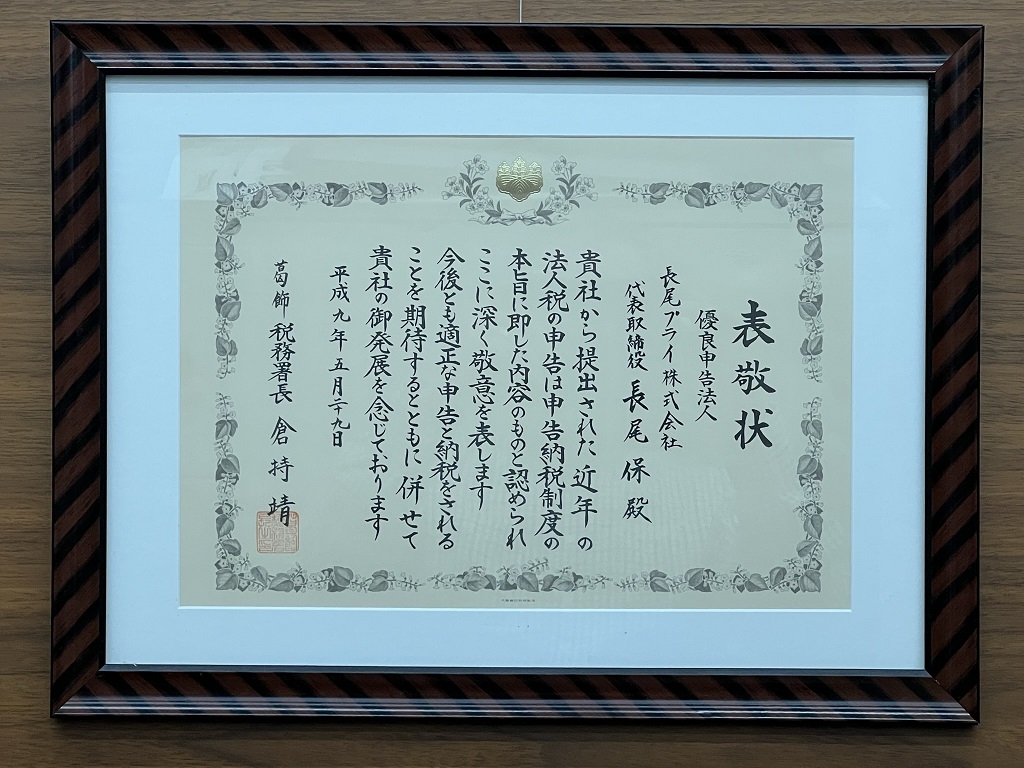 表敬状
優良申告法人
長尾プライ株式会社
代表取締役 長尾保殿
貴社から提出された近年の
法人税の申告は申告納税制度の
本旨に即した内容のものと認められ
ここに深く敬意を表します
今後とも適正な申告と納税をされる
ことを期待するとともに併せて
貴社の御発展を念じております
平成九年五月二十九日
葛飾税務署長 倉持靖